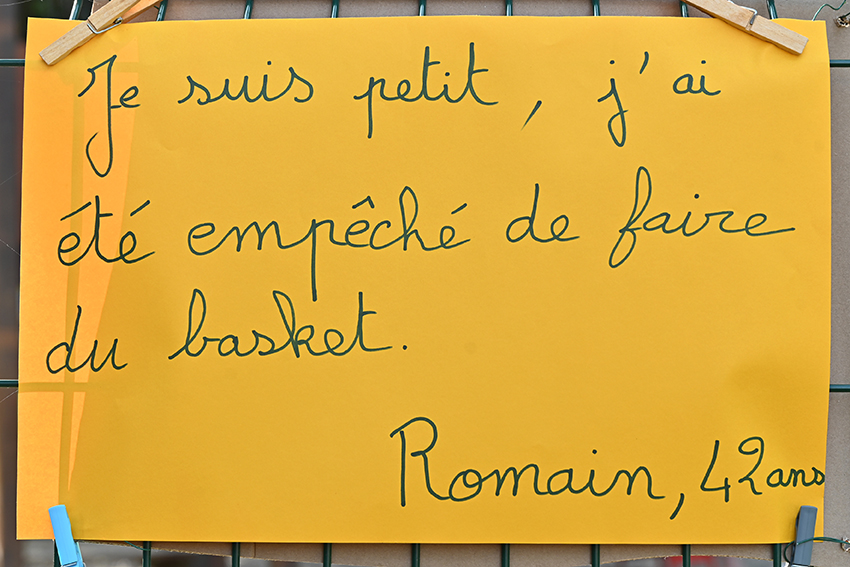 Je suis petit, j'ai
été empêché de faire
du basket.
Romain, 42 ans